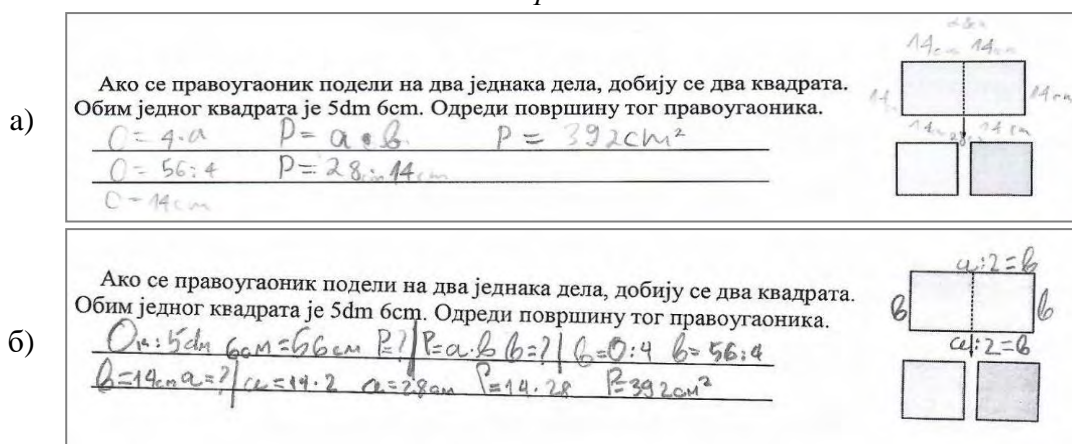 а)
28cm
14cm 14cm
Ако се правоугаоник подели на два једнака дела, добију се два квадрата.
Обим једног квадрата је 5dm 6cm. Одреди површину тог правоугаоника.
14cm
O = 4·a P = a·b P = 392cm²
14cm 14cm
O = 56:4 P = 28cm·14cm
O = 14cm
б)
a:2=b
Ако се правоугаоник подели на два једнака дела, добију се два квадрата.
Обим једног квадрата је 5dm 6cm. Одреди површину тог правоугаоника.
b b
a:2=b
Oк: 5dm 6cm=56cm P=? P=a·b b=? b=O:4 b=56:4
b=14cm a=? a=14·2 a=28cm P=14·28 P=392cm²